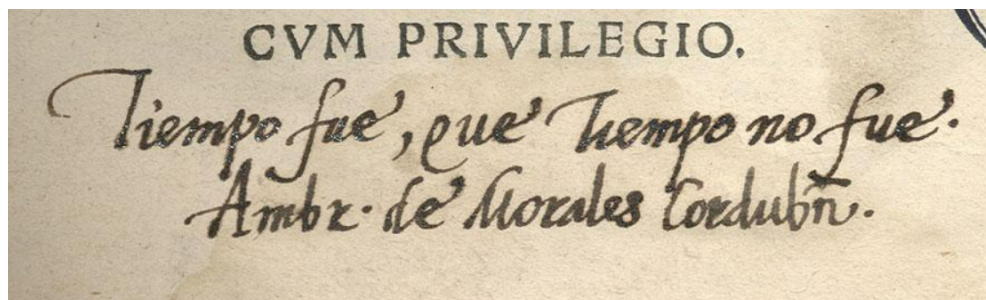 CVM PRIVILEGIO.
Tiempo fue, que Tiempo no fue.
Ambr. de Morales Cordubñ.